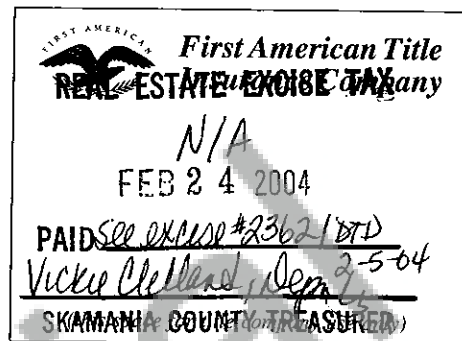 FIRST AMERICAN
First American Title
Insurance Company
REAL ESTATE EXCISE TAX
N/A
FEB 24 2004
PAID See excise #23621 DTD
2-5-04
Vickie Clelland, Deputy
SKAMANIA COUNTY TREASURER